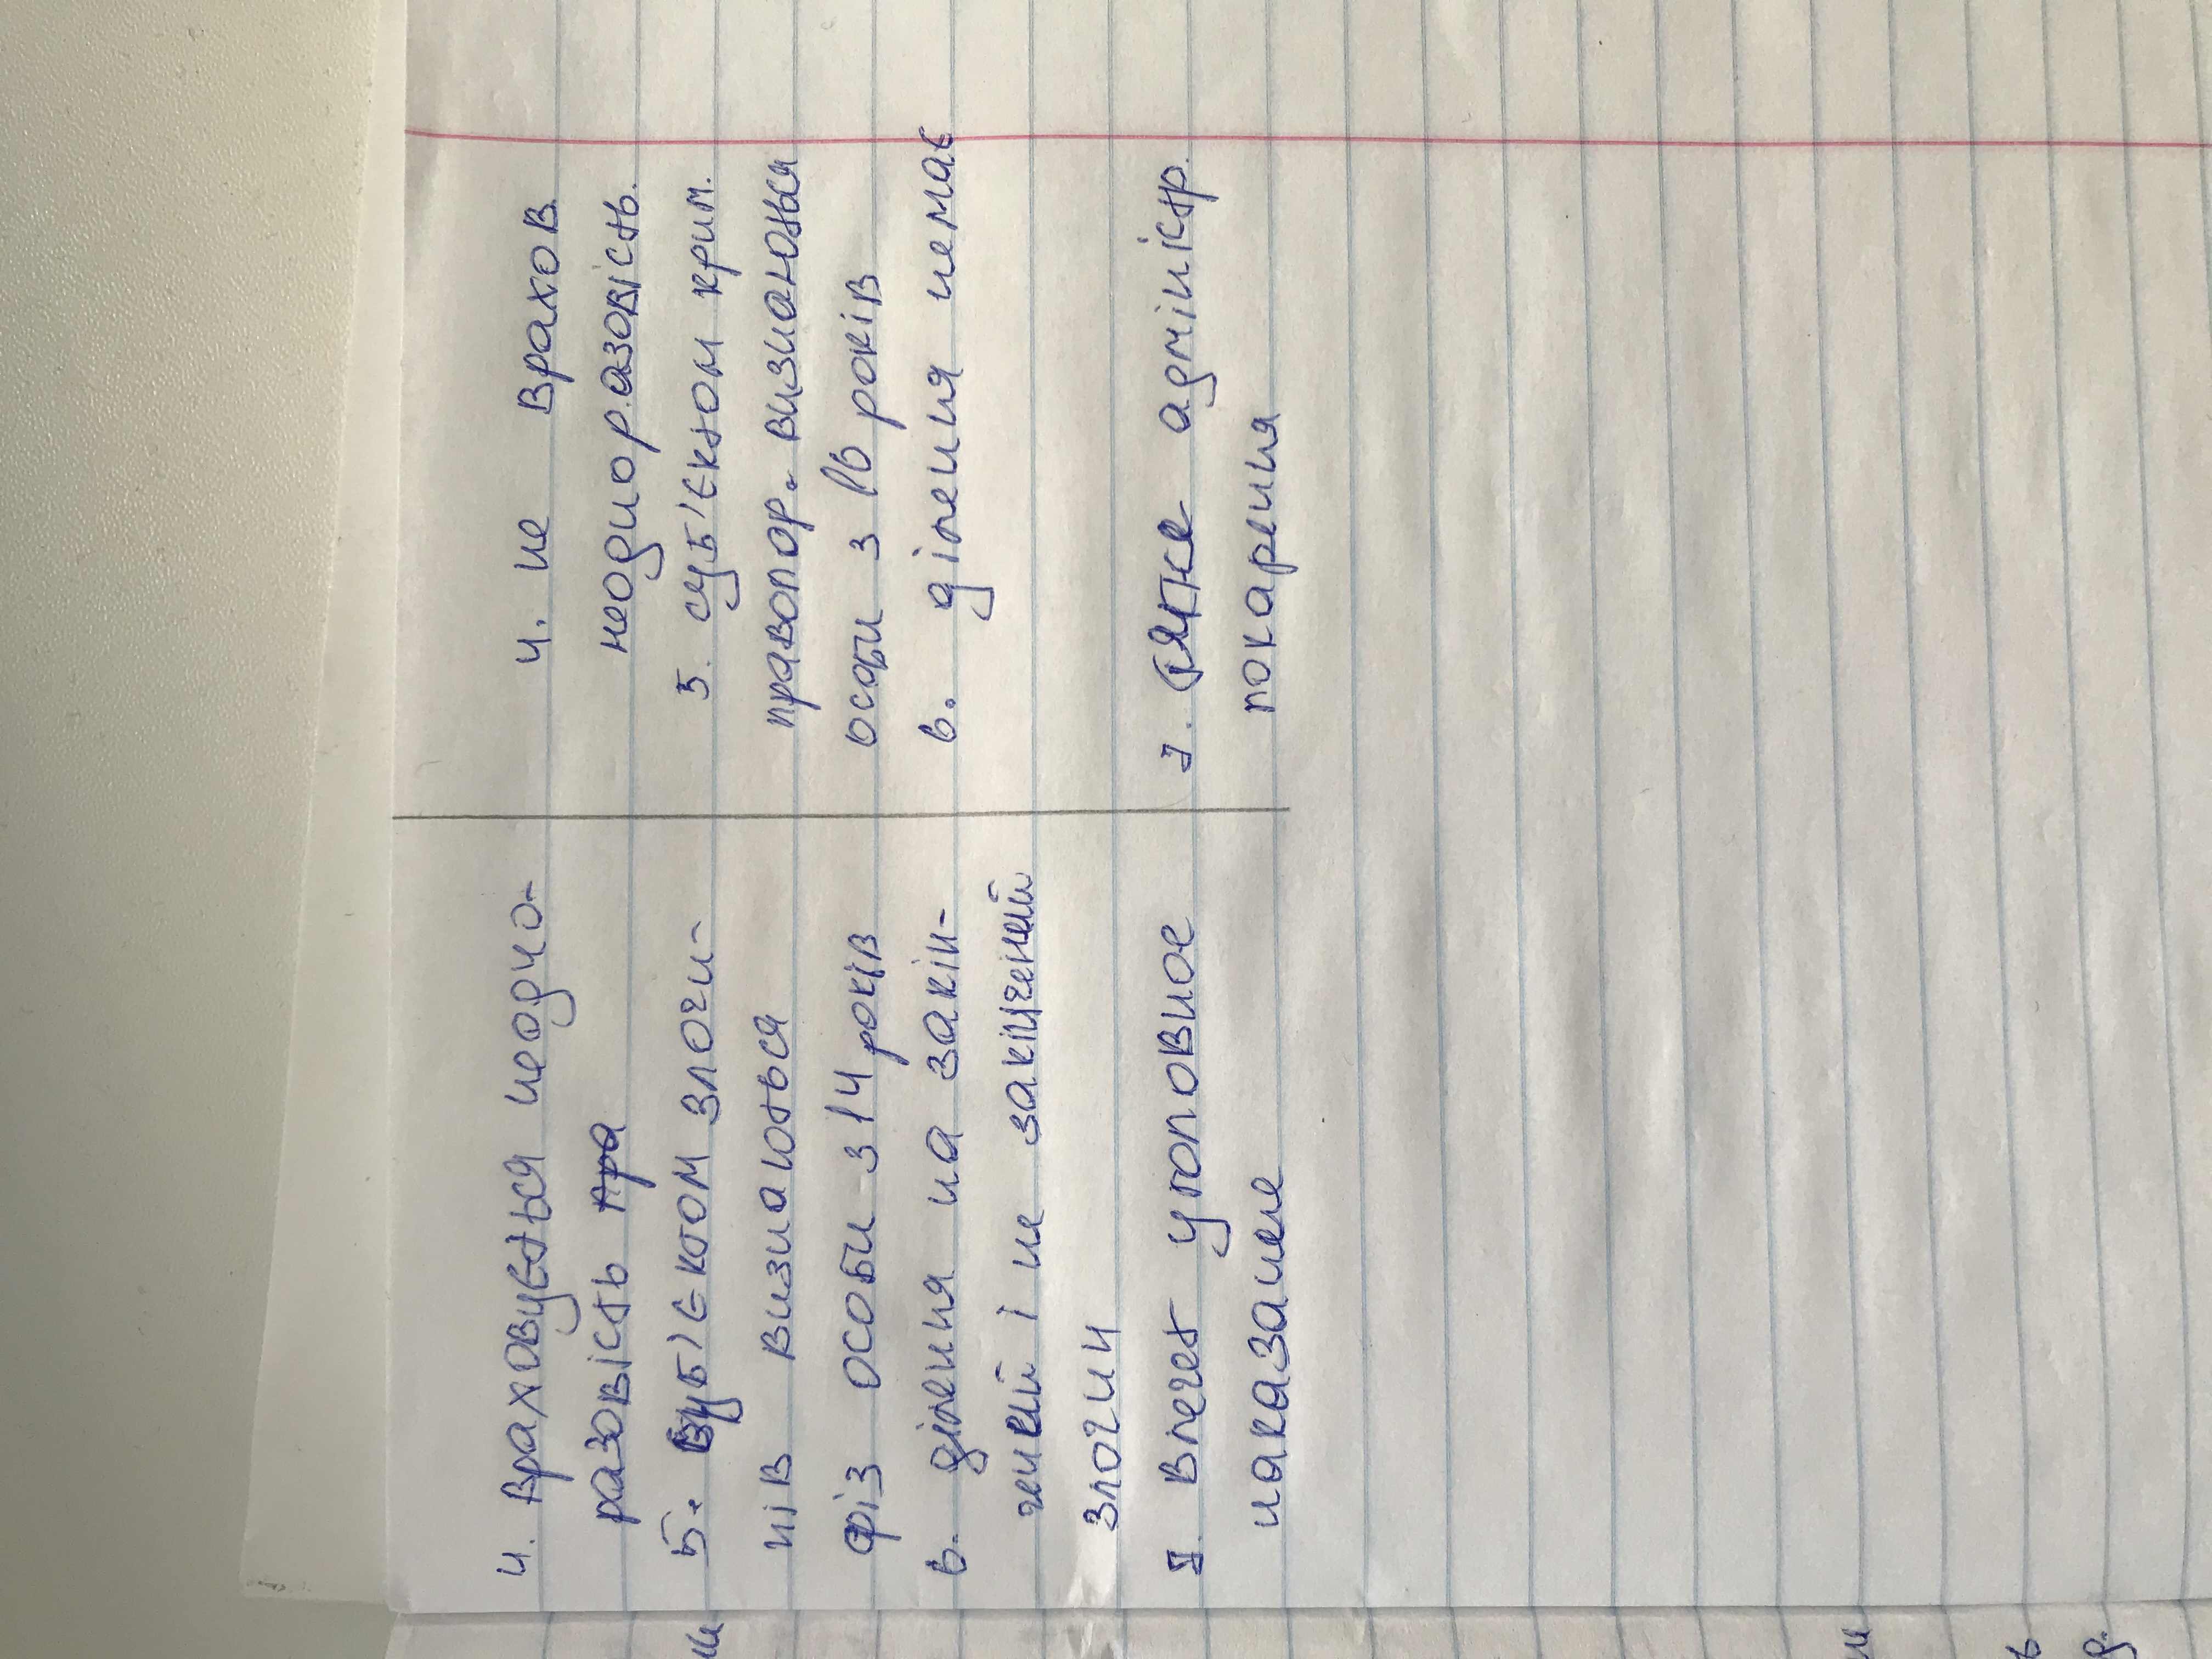 4. Враховується неодно-
разовість пра
5. Суб'єктом злочи-
нів визнаються
фіз особи з 14 років
6. ділення на закін-
чений і не закінчений
злочин
7. влечет уголовное
наказание
4. не врахов.
неодноразовість.
5. суб'єктом крим.
правопор. визнаються
особи з 16 років
6. ділення немає
7. тякне адміністр.
покарення